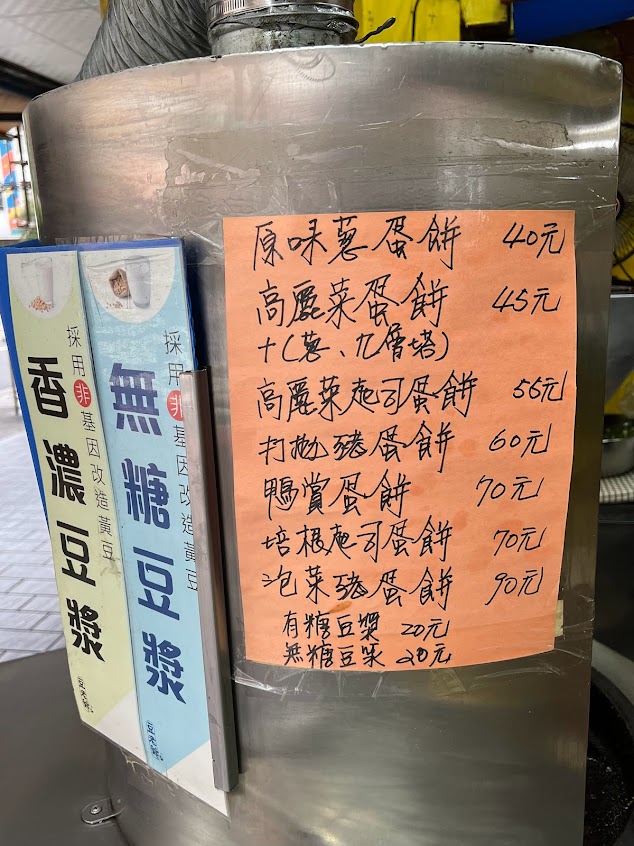 原味蔥蛋餅 40元
高麗菜蛋餅 45元
+(蔥、九層塔)
高麗菜起司蛋餅 55元
打拋豬蛋餅 60元
鴨賞蛋餅 70元
培根起司蛋餅 70元
泡菜豬蛋餅 90元
有糖豆漿 20元
無糖豆漿 20元
採用非基因改造黃豆
香濃豆漿
採用非基因改造黃豆
無糖豆漿